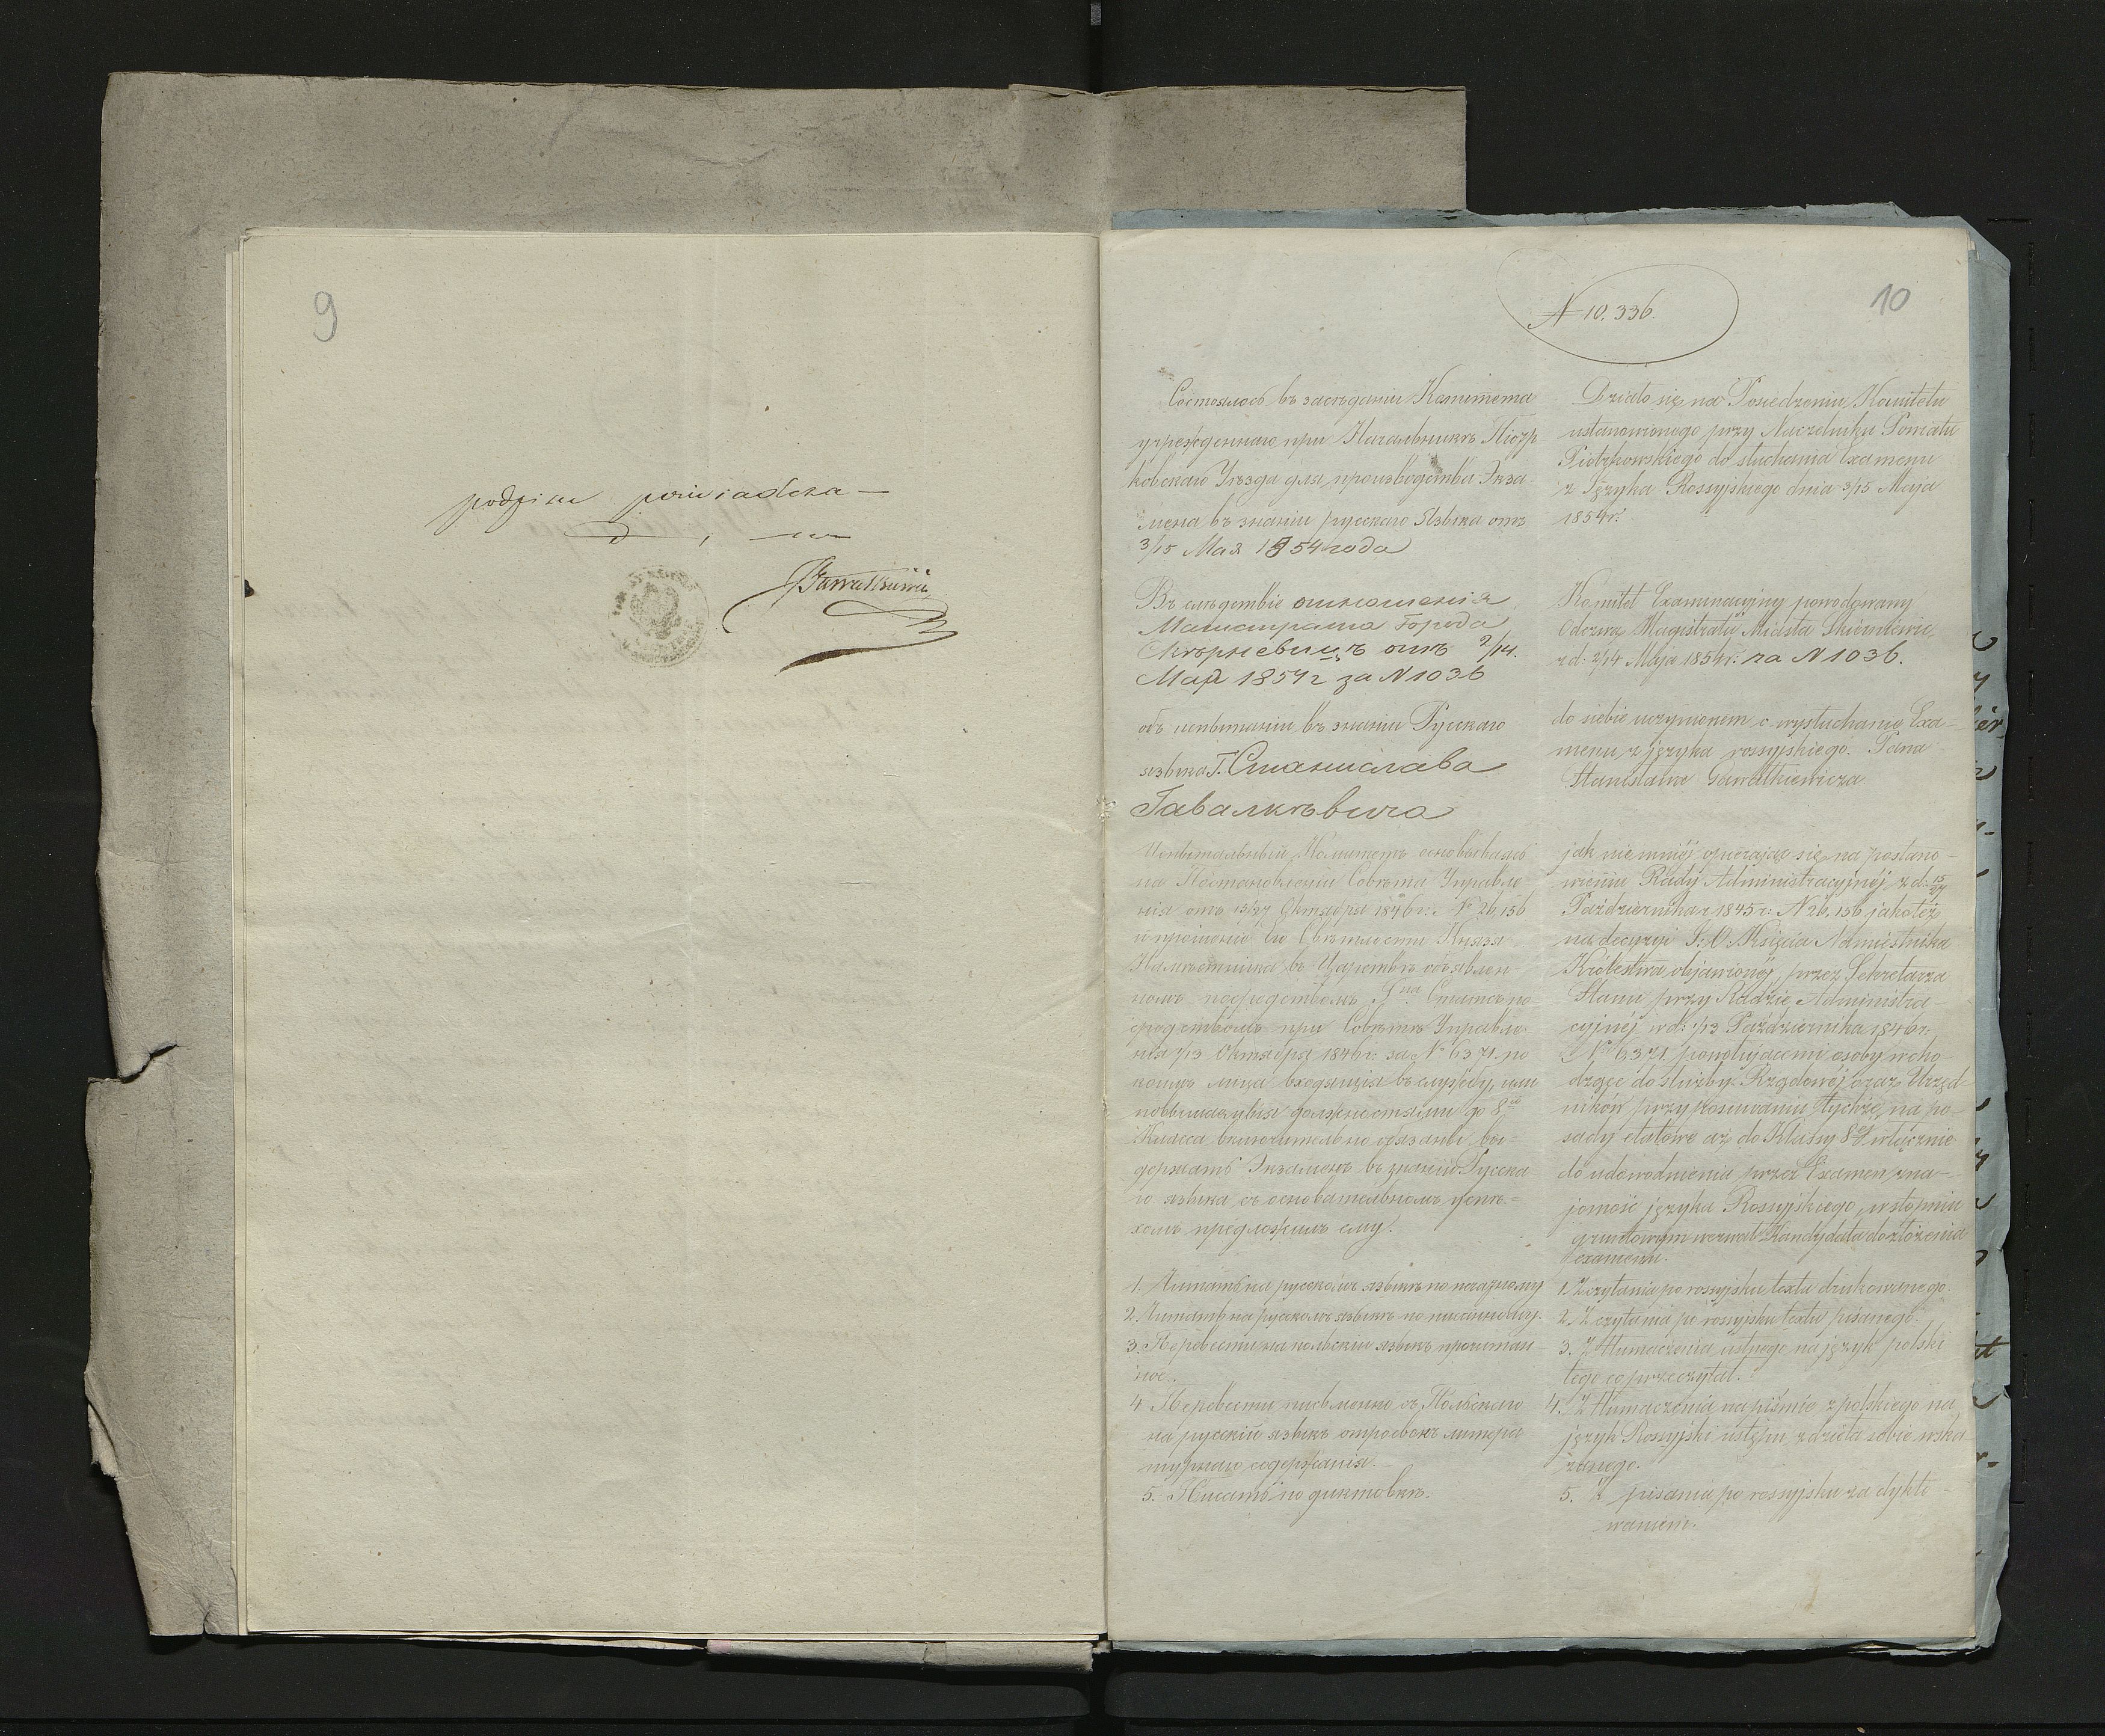 9
podpisu poświadcza —
N 10.336.
10
Состоялось въ засѣданіи Комитета
учрежденнаго при Начальникѣ Піотр
ковскаго Уѣзда для производства Экза
мена въ знаніи русскаго Языка отъ
3/15 Мая 1854 года
Въ слѣдствіе отношенія
Магистрата Города
Скѣрневицъ отъ 2/14.
Мая 1854 г за N 1036
объ испытаніи въ знаніи Русскаго
языка Г. Станислава
Гавалкѣвича
Испытательный Комитетъ основываясь
на Постановленіи Совѣта Управле
нія отъ 15/27 Октября 1846 г: N 26,156
и Его Свѣтлости Князя
Намѣстника въ Царствѣ объявлен
номъ посредствомъ Статсъ
при Совѣтѣ Управле
нія 1/13 Октября 1846 г: за N 6371 по
коимъ лица входящія въ службу, или
должностями до 8го
Класса включительно обязаны вы-
держать Экзаменъ въ знаніи Русска
го языка съ основательнымъ успѣ-
хомъ предложилъ ему:
1. Читать на русскомъ языкѣ по печатному
2. Читать на русскомъ языкѣ по писанному.
3. Перевести на польскій языкъ прочитан
ное.
4 Перевести письменно съ Польскаго
на русскій языкъ отрывокъ литера
турнаго содержанія.
5. Писать по диктовкѣ.
Działo się na Posiedzeniu Komitetu
ustanowionego przy Naczelniku Powiatu
Piotrkowskiego do słuchania Examenu
z Języka Rossyjskiego dnia 3/15 Maja
1854 r:
Komitet Examinacyjny powodowany
Odezwą Magistratu Miasta Skierniewic
z d: 2/14 Maja 1854 r: za N 1036.
do siebie uczynionem o wysłuchanie Exa-
menu z języka rossyjskiego. Pana
Stanisława Gawałkiewicza
jak nie mniéj opierając się na postano-
wieniu Rady Administracyjnéj z d: 15/27
Października 1845 r: N 26,156 jakoteż
na decyzyi J:O Księcia Namiestnika
Królestwa objawionéj przez Sekretarza
Stanu przy Radzie Administra-
cyjnéj w d: 1/13 Października 1846 r:
N 6371 powołującemi osoby wcho-
dzące do służby Rządowéj oraz Urzęd-
ników przy posuwaniu tychże, na po-
sady etatowe aż do Klassy 8éj włącznie
do udowodnienia przez Examen zna-
jomość języka Rossyjskiego, w stopniu
gruntownym wezwał Kandydata do złożenia
examenu.
1. Z czytania po rossyjsku textu drukowanego.
2. Z czytania po rossyjsku textu pisanego.
3. Z tłumaczenia ustnego na język polski
tego co przeczytał.
4. Z tłumaczenia na piśmie z polskiego na
język Rossyjski ustępu z dzieła sobie wska
zanego.
5. Z pisania po rossyjsku za dykto-
waniem.